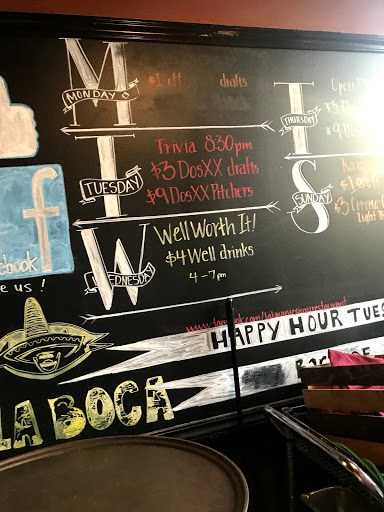 M
MONDAY
$1 off drafts
T
TUESDAY
Trivia 8:30pm
$3 DosXX drafts
$9 DosXX Pitchers
W
WEDNESDAY
Well Worth It!
$4 Well drinks
4-7pm
T
THURSDAY
Open
$3
$9
S
SUNDAY
$3 Corona
Light
f
ebook
e us!
HAPPY HOUR TUES
LA BOCA